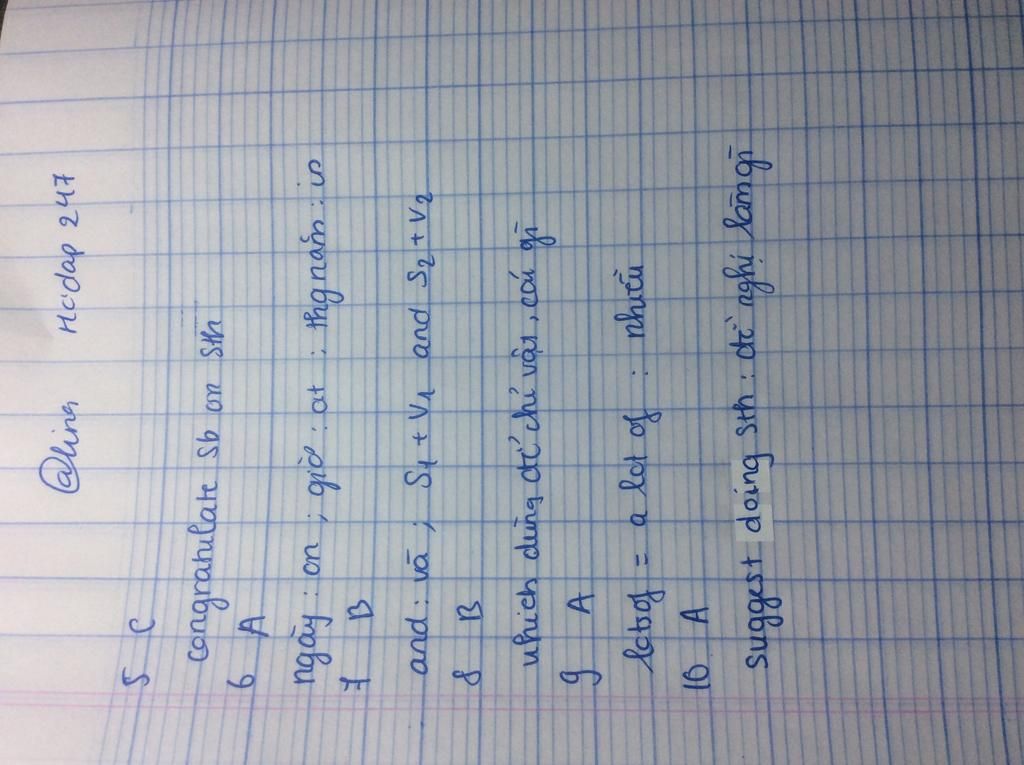 @ling Hỏi đáp 247
5 C
congratulate sb on sth
6 A
ngày : on ; giờ : at ; thg năm : in
7 B
and : và ; S1 + V1 and S2 + V2
8 B
which dùng để chỉ vật, cái gì
9 A
lots of = a lot of : nhiều
10 A
suggest doing sth : đề nghị làm gì